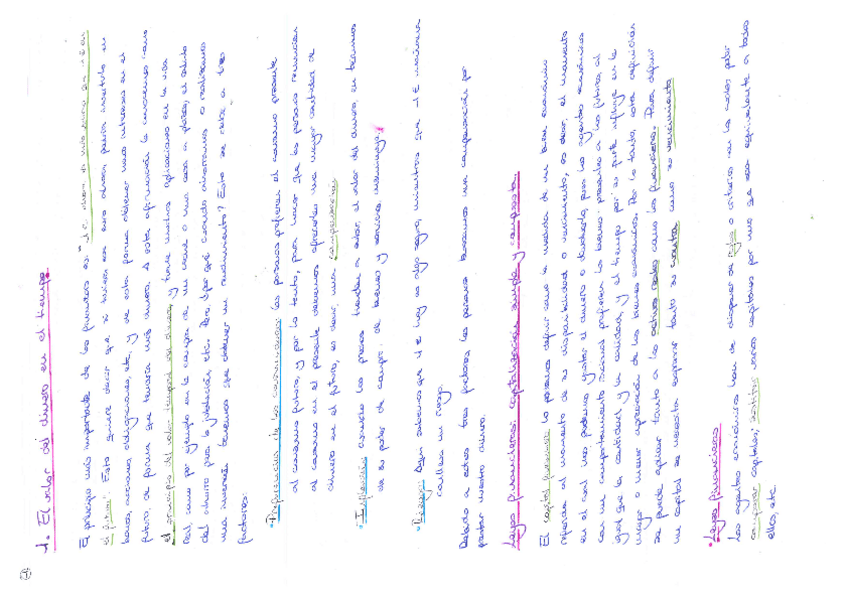 1. El valor del dinero en el tiempo
El principio más importante de las finanzas es "1 € ahora vale más que 1 € en
el futuro". Esto quiere decir que si tuviera ese euro ahora, podría invertirlo en
bonos, acciones, obligaciones, etc, y de esta forma obtener unos intereses en el
futuro, de forma que tendría más dinero. A esta afirmación la conocemos como
el principio del valor temporal del dinero, y tiene muchas aplicaciones en la vida
real, como por ejemplo en la compra de un coche o una casa a plazos, el estudio
del ahorro para la jubilación, etc. Pero, ¿por qué cuando ahorramos o realizamos
una inversión tenemos que obtener un rendimiento? Esto se debe a tres
factores:
• Preferencias de los consumidores: las personas prefieren el consumo presente
al consumo futuro, y por lo tanto, para hacer que las personas renuncien
al consumo en el presente debemos ofrecerles una mayor cantidad de
dinero en el futuro, es decir, una compensación.
• Inflación: cuando los precios tienden a subir, el valor del dinero, en términos
de su poder de compra de bienes y servicios disminuye.
• Riesgo: sabemos que 1 € hoy es algo seguro, mientras que 1 € mañana
conlleva un riesgo.
Debido a estos tres factores, las personas buscamos una compensación por
prestar nuestro dinero.
Leyes financieras: capitalización simple y compuesta.
El capital financiero lo podemos definir como la medida de un bien económico
referida al momento de su disponibilidad o vencimiento, es decir, el momento
en el cual nos podemos gastar el dinero o disfrutarlo, pues los agentes económicos
con un comportamiento racional prefieren los bienes presentes a los futuros, al
igual que la cantidad y la calidad, y el tiempo por su parte influye en la
mayor o menor apreciación de los bienes económicos. Por lo tanto, esta definición
se puede aplicar tanto a los activos reales como los financieros. Para definir
un capital se necesita expresar tanto su cuantía como su vencimiento.
• Leyes financieras
Los agentes económicos han de disponer de regla o criterio con la cual poder
comparar capitales, sustituir varios capitales por uno que sea equivalente a todos
ellos, etc.
1